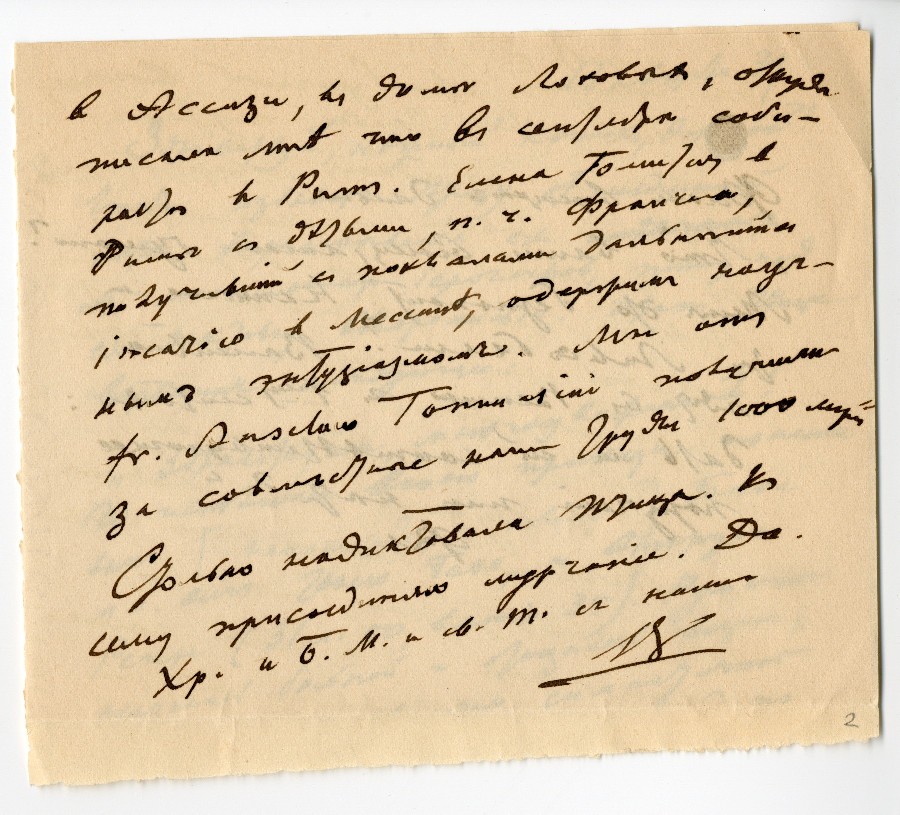 в Ассизи, въ домъ Лоховыхъ, откуда
писала мнѣ что въ сентябрѣ соби-
рается в Римъ. Елена томится в
Римѣ съ дѣтьми, п. ч. Франческо,
получивший съ похвалами дальнѣйший
incarico в Мессинѣ, одержимъ науч-
нымъ энтузіазмомъ. Мы отъ
fr. Anselmo Tommasini получили
за совмѣстные наши труды 1000 лиръ
Столько надиктовала птица. Къ
сему присоединяю мурчаніе. Да.
Хр. и Б. М. и св. Т. съ нами
2